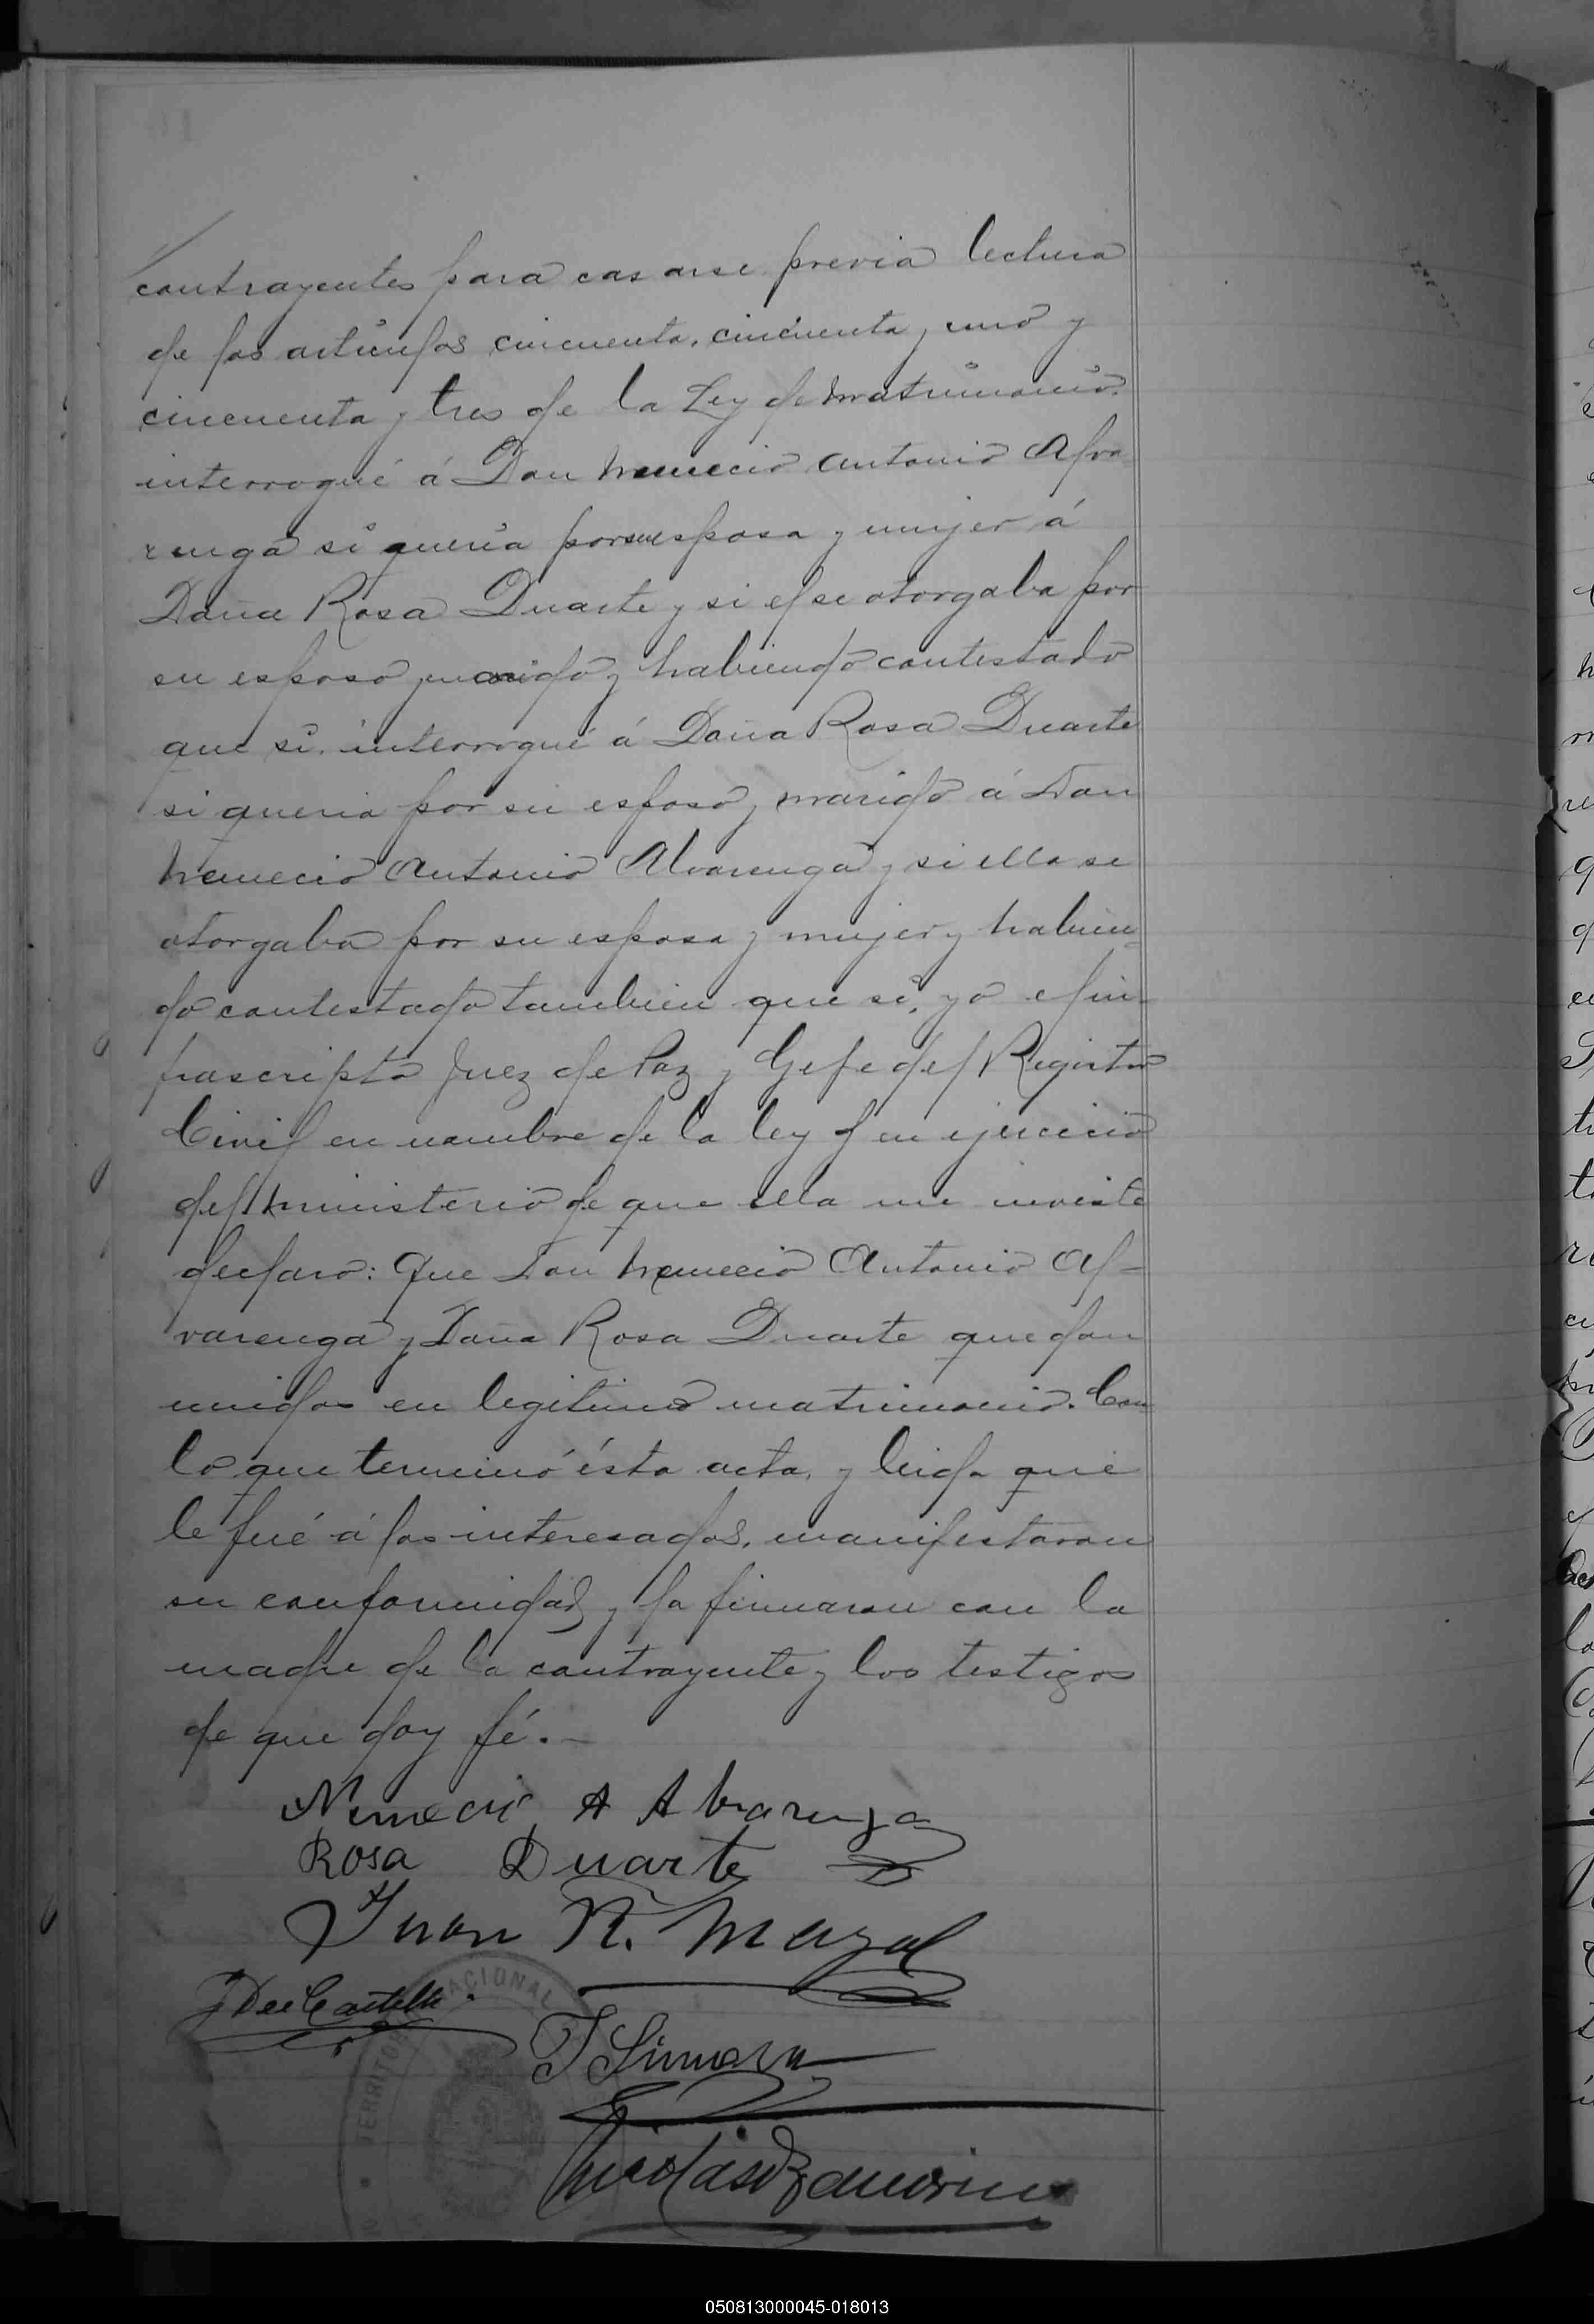 contrayentes para casarse previa lectura
de los artículos cincuenta, cincuenta y uno y
cincuenta y tres de la Ley de Matrimonio.
interrogué á Don Nemecio Antonio Alva
renga si quería por su esposa y mujer á
Doña Rosa Duarte y si el se otorgaba por
su esposo y marido y habiendo contestado
que sí, interrogué á Doña Rosa Duarte
si queria por su esposo y marido á Don
Nemecio Antonio Alvarenga y si ella se
otorgaba por su esposa y mujer y habien-
do contestado tambien que sí, yo el in-
frascripto Juez de Paz y Gefe del Registro
Civil en nombre de la ley y en ejercicio
del Ministerio de que ella me inviste
declaro: Que Don Nemecio Antonio Al-
varenga y Doña Rosa Duarte quedan
unidos en legitimo matrimonio. Con
lo que terminó ésta acta, y leida que
le fué á los interesados, manifestaron
su conformidad y la firmaron con la
madre de la contrayente y los testigos
de que doy fé.-
Nemecio A Alvarenga
Rosa Duarte
Juan R. Mazal
ACIONAL
TERRITO
050813000045-018013